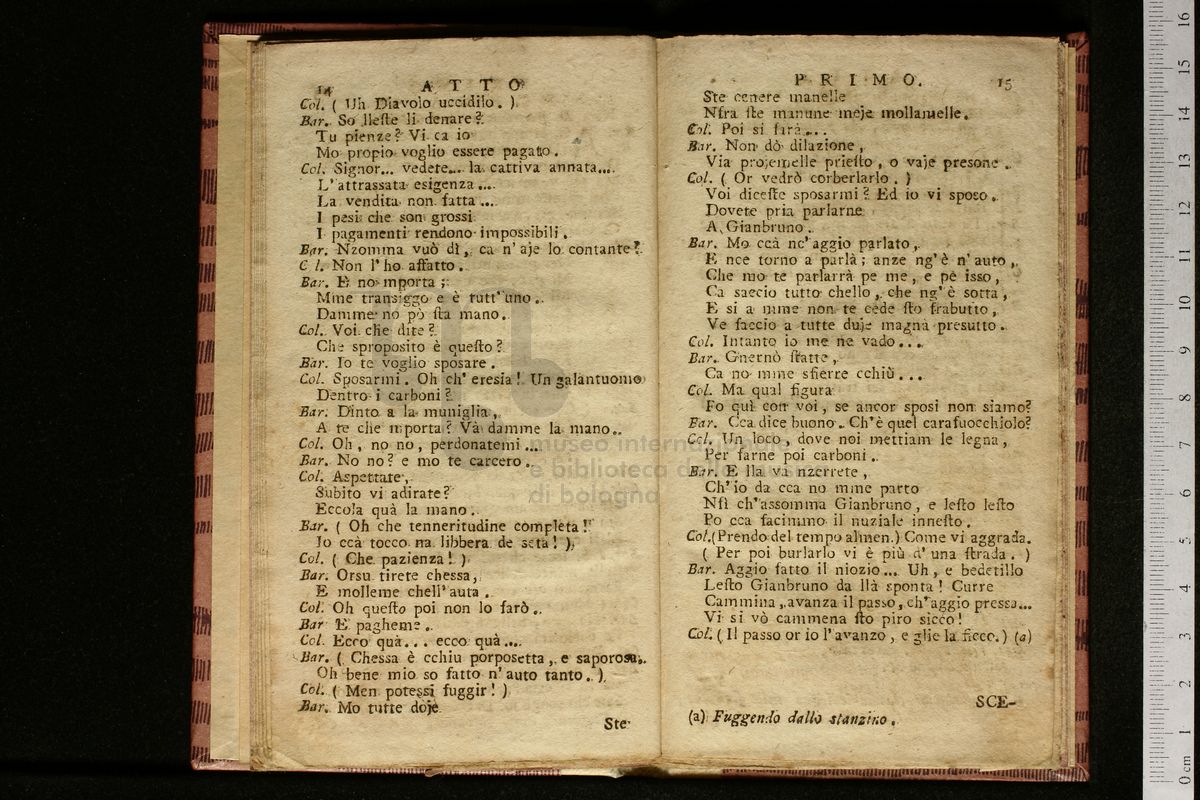 14 ATTO
Col. ( Uh Diavolo uccidilo. )
Bar. So lleſte li denare?
Tu pienze? Vi ca io
Mo propio voglio essere pagato.
Col. Signor... vedete... la cattiva annata....
L'attrassata esigenza ....
La vendita non fatta ...
I pesi che son grossi
I pagamenti rendono impossibili.
Bar. Nzomma vuò dì, ca n'aje lo contante?
C l. Non l'ho affatto.
Bar. E no mporta;
Mme transiggo e è tutt'uno.
Damme no pò ſta mano.
Col. Voi che dite?
Che sproposito è queſto?
Bar. Io te voglio sposare.
Col. Sposarmi. Oh ch'eresia! Un galantuomo
Dentro i carboni?
Bar. Dinto a la muniglia,
A te che mporta? Và damme la mano.
Col. Oh, no no, perdonatemi...
Bar. No no? e mo te carcero.
Col. Aspettate,
Subito vi adirate?
Eccola quà la mano.
Bar. ( Oh che tenneritudine completa!
Io ccà tocco na libbera de seta! )
Col. ( Che pazienza! )
Bar. Orsu tirete chessa,
E molleme chell'auta.
Col. Oh queſto poi non lo farò.
Bar E pagheme.
Col. Ecco quà... ecco quà....
Bar. ( Chessa è cchiu porposetta, e saporosa,
Oh bene mio so fatto n'auto tanto. )
Col. ( Men potessi fuggir! )
Bar. Mo tutte doje
Ste
PRIMO. 15
Ste cenere manelle
Nfra ſte manune meje mollamelle.
Col. Poi si farà...
Bar. Non dò dilazione,
Via projemelle prieſto, o vaje presone.
Col. ( Or vedrò corberlarlo. )
Voi diceſte sposarmi? Ed io vi sposo.
Dovete pria parlarne
A Gianbruno.
Bar. Mo ccà nc'aggio parlato,
E nce torno a parlà; anze ng'è n'auto,
Che mo te parlarrà pe me, e pe isso,
Ca saccio tutto chello, che ng'è sotta,
E si a mme non te cede ſto frabutto,
Ve faccio a tutte duje magnà presutto.
Col. Intanto io me ne vado...
Bar. Gnernò ſtatte,
Ca no mme sfierre cchiù...
Col. Ma qual figura
Fo quì con voi, se ancor sposi non siamo?
Bar. Cca dice buono. Ch'è quel carafuocchiolo?
Col. Un loco, dove noi mettiam le legna,
Per farne poi carboni.
Bar. E lla va nzerrete,
Ch'io da cca no mme parto
Nfi ch'assomma Gianbruno, e leſto leſto
Po cca facimmo il nuziale inneſto.
Col. (Prendo del tempo almen.) Come vi aggrada.
( Per poi burlarlo vi è più d'una ſtrada. )
Bar. Aggio fatto il niozio... Uh, e bedetillo
Leſto Gianbruno da llà sponta! Curre
Cammina, avanza il passo, ch'aggio pressa...
Vi si vò cammena ſto piro sicco!
Col. ( Il passo or io l'avanzo, e glie la ficco. ) (a)
SCE-
(a) Fuggendo dallo stanzino.
museo internazionale
e biblioteca della musica
di bologna
0 cm 1 2 3 4 5 6 7 8 9 10 11 12 13 14 15 16